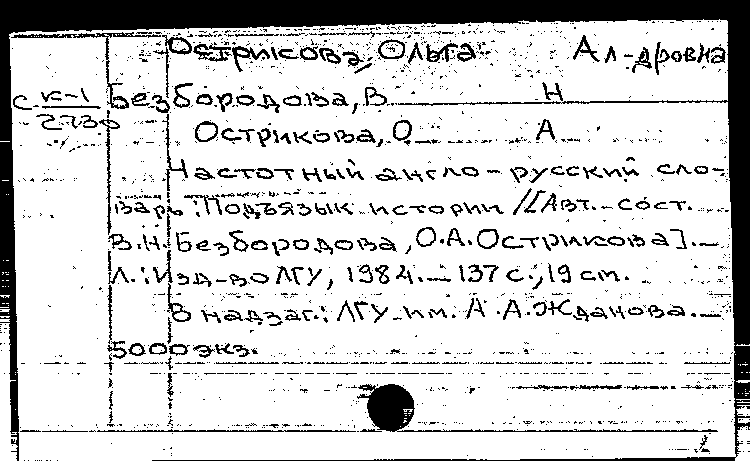 Острикова, Ольга Ал-дровна
с К-1 Безбородова, В Н
2730 Острикова, О А
Частотный англо-русский сло-
варь: Подъязык истории /[Авт.-сост.
В.Н. Безбородова, О.А. Острикова].—
Л.: Изд-во ЛГУ, 1984.— 137 с.; 19 см.
В надзаг.: ЛГУ им. А.А. Жданова.—
5000 экз.